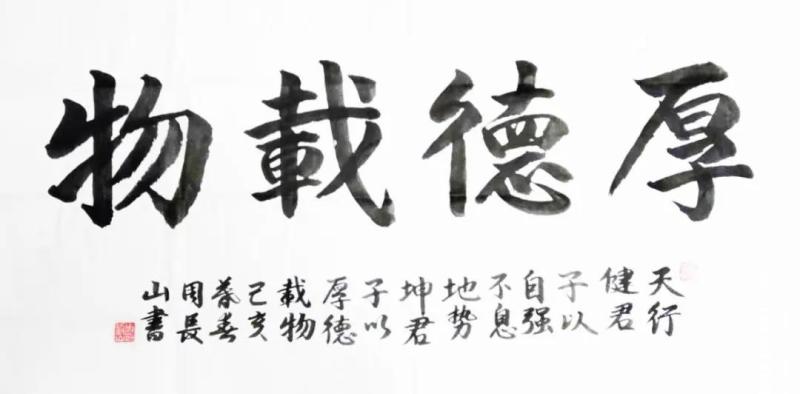 厚德載物
天行
健君
子以
自强
不息
地势
坤君
子以
厚德
載物
己亥
暮春
周長
山書